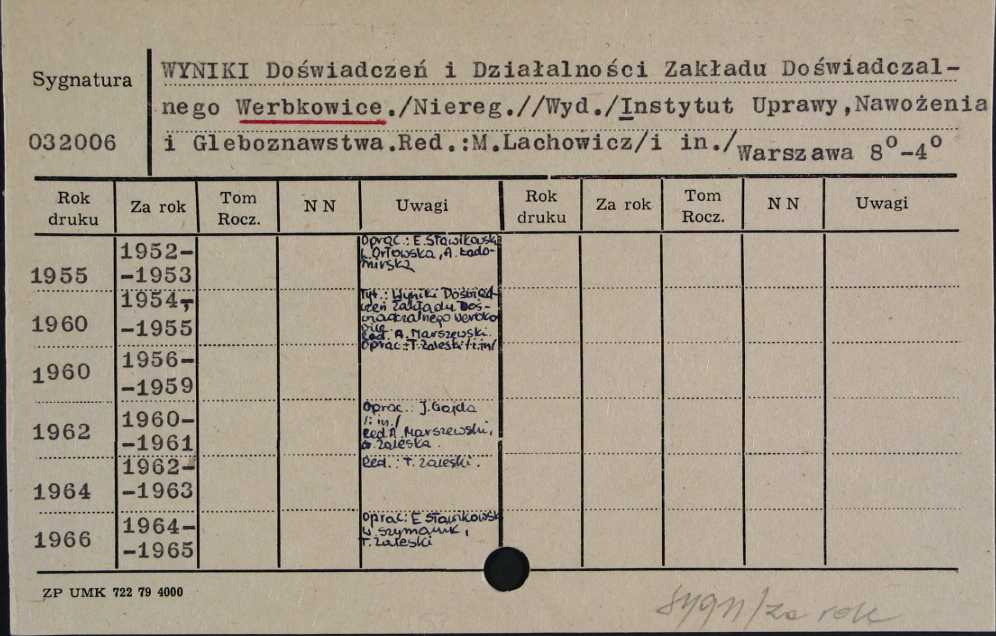 Sygnatura
032006
WYNIKI Doświadczeń i Działalności Zakładu Doświadczal-
nego Werbkowice./Niereg.//Wyd./Instytut Uprawy,Nawożenia
i Gleboznawstwa.Red.:M.Lachowicz/i in./Warszawa 8°-4°
Rok druku Za rok Tom Rocz. N N Uwagi Rok druku Za rok Tom Rocz. N N Uwagi
1955 1952-
-1953
Oprac.: E. Sławikowski
L. Orłowska, A. Łado-
mirska
1960 1954-
-1955
Tyt.: Wyniki Doświad-
czeń Zakładu Doś-
wiadczalnego Werbko-
wice
Red. A. Marszewski.
Oprac.: T. Zaleski /i in/
1960 1956-
-1959
1962 1960-
-1961
Oprac.: J. Gajda
/i in./
Red. A. Marszewski,
Zaleska.
1964 1962-
-1963
Red.: T. Zaleski.
1966 1964-
-1965
Oprac: E
W Szymanik,
T. Zaleski
ZP UMK 722 79 4000
sygn/za rok